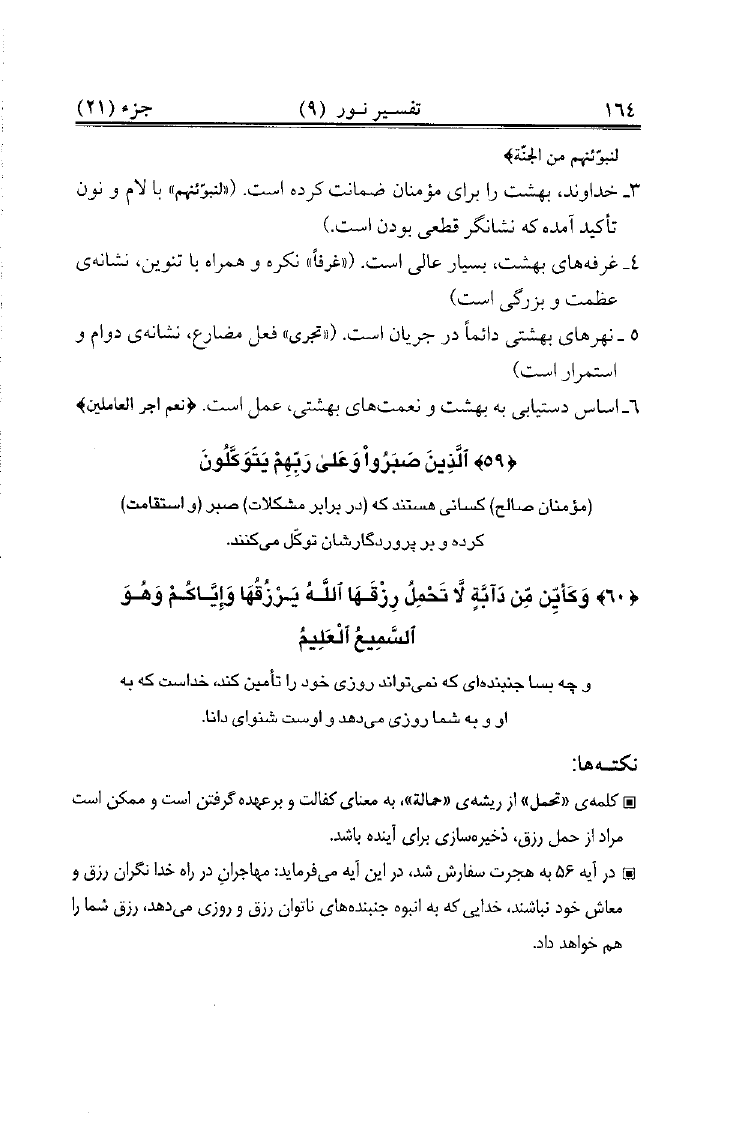 ١٦٤ تفسیر نور (۹) جزء (۲۱)
لنبوّئنهم من الجنّة﴾
۳ـ خداوند، بهشت را برای مؤمنان ضمانت کرده است. («لنبوّئنهم» با لام و نون
تأکید آمده که نشانگر قطعی بودن است.)
٤ـ غرفه‌های بهشت، بسیار عالی است. («غرفاً» نکره و همراه با تنوین، نشانه‌ی
عظمت و بزرگی است)
٥ ـ نهرهای بهشتی دائماً در جریان است. («تجری» فعل مضارع، نشانه‌ی دوام و
استمرار است)
٦ـ اساس دستیابی به بهشت و نعمت‌های بهشتی، عمل است. ﴿نعم اجر العاملین﴾
﴿٥٩﴾ ٱلَّذِينَ صَبَرُواْ وَعَلَىٰ رَبِّهِمْ يَتَوَكَّلُونَ
(مؤمنان صالح) کسانی هستند که (در برابر مشکلات) صبر (و استقامت)
کرده و بر پروردگارشان توکّل می‌کنند.
﴿٦٠﴾ وَكَأَيِّن مِّن دَآبَّةٍ لَّا تَحْمِلُ رِزْقَهَا ٱللَّهُ يَرْزُقُهَا وَإِيَّاكُمْ وَهُوَ
ٱلسَّمِيعُ ٱلْعَلِيمُ
و چه بسا جنبنده‌ای که نمی‌تواند روزی خود را تأمین کند، خداست که به
او و به شما روزی می‌دهد و اوست شنوای دانا.
نکته‌ها:
▣ کلمه‌ی «تحمل» از ریشه‌ی «حمالة»، به معنای کفالت و برعهده گرفتن است و ممکن است
مراد از حمل رزق، ذخیره‌سازی برای آینده باشد.
▣ در آیه ۵۶ به هجرت سفارش شد، در این آیه می‌فرماید: مهاجرانِ در راه خدا نگران رزق و
معاش خود نباشند، خدایی که به انبوه جنبنده‌های ناتوان رزق و روزی می‌دهد، رزق شما را
هم خواهد داد.